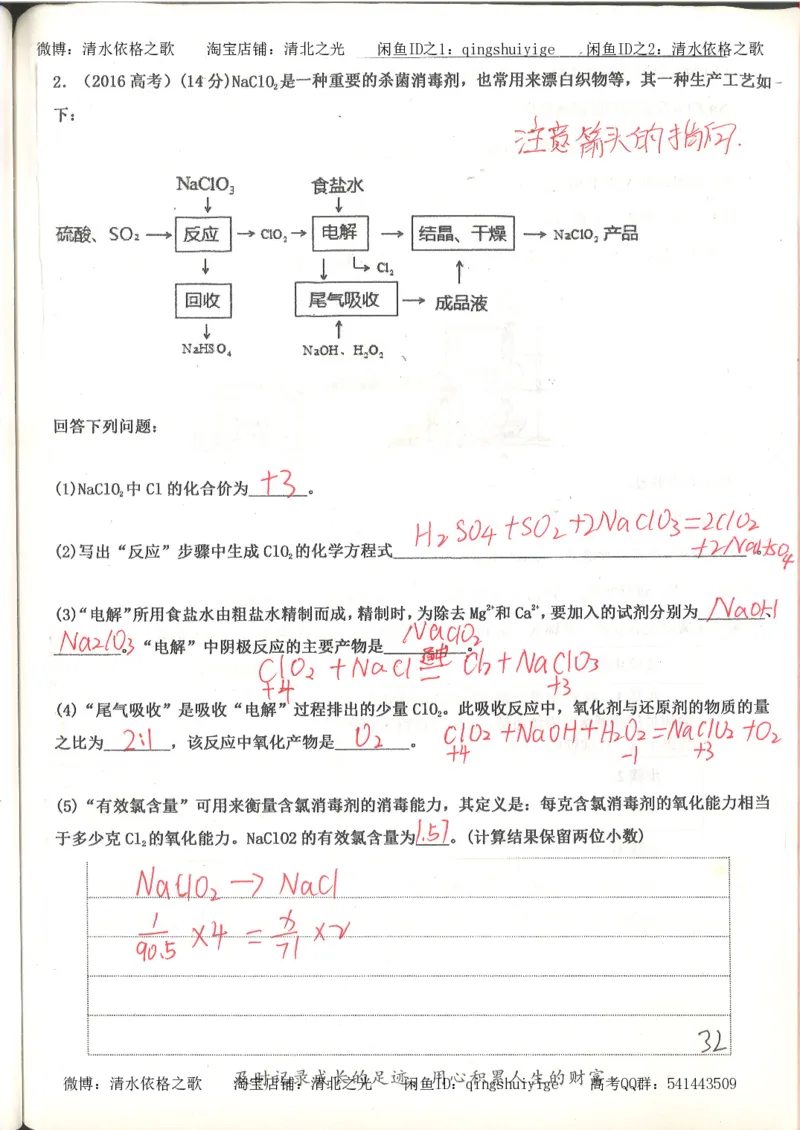 微博：清水依格之歌 淘宝店铺：清北之光 闲鱼ID之1：qingshuiyige 闲鱼ID之2：清水依格之歌
2. （2016 高考）(14 分)NaClO₂是一种重要的杀菌消毒剂，也常用来漂白织物等，其一种生产工艺如
下：
注意箭头的指向.
NaClO₃ 食盐水
硫酸、SO₂ → 反应 → ClO₂ → 电解 → 结晶、干燥 → NaClO₂ 产品
Cl₂
回收 尾气吸收 → 成品液
NaHSO₄ NaOH、H₂O₂
回答下列问题：
(1)NaClO₂中 Cl 的化合价为 +3 。
H₂SO₄+SO₂+2NaClO₃=2ClO₂
(2)写出“反应”步骤中生成 ClO₂的化学方程式 +2NaHSO₄ 。
(3)“电解”所用食盐水由粗盐水精制而成，精制时，为除去 Mg²⁺和 Ca²⁺，要加入的试剂分别为 NaOH 、
Na₂CO₃ 。“电解”中阴极反应的主要产物是 NaClO₂ 。
ClO₂ + NaCl 通电= Cl₂ + NaClO₃
+4 +3
(4)“尾气吸收”是吸收“电解”过程排出的少量 ClO₂。此吸收反应中，氧化剂与还原剂的物质的量
之比为 2:1 ，该反应中氧化产物是 O₂ 。 ClO₂+NaOH+H₂O₂=NaClO₂+O₂
+4 -1 +3
(5)“有效氯含量”可用来衡量含氯消毒剂的消毒能力，其定义是：每克含氯消毒剂的氧化能力相当
于多少克 Cl₂的氧化能力。NaClO2 的有效氯含量为 1.57 。(计算结果保留两位小数)
NaClO₂ → NaCl
1/90.5 ×4 = x/71 ×2
32
及时记录成长的足迹 用心积累人生的财富
微博：清水依格之歌 淘宝店铺：清北之光 闲鱼ID：qingshuiyige 高考QQ群：541443509